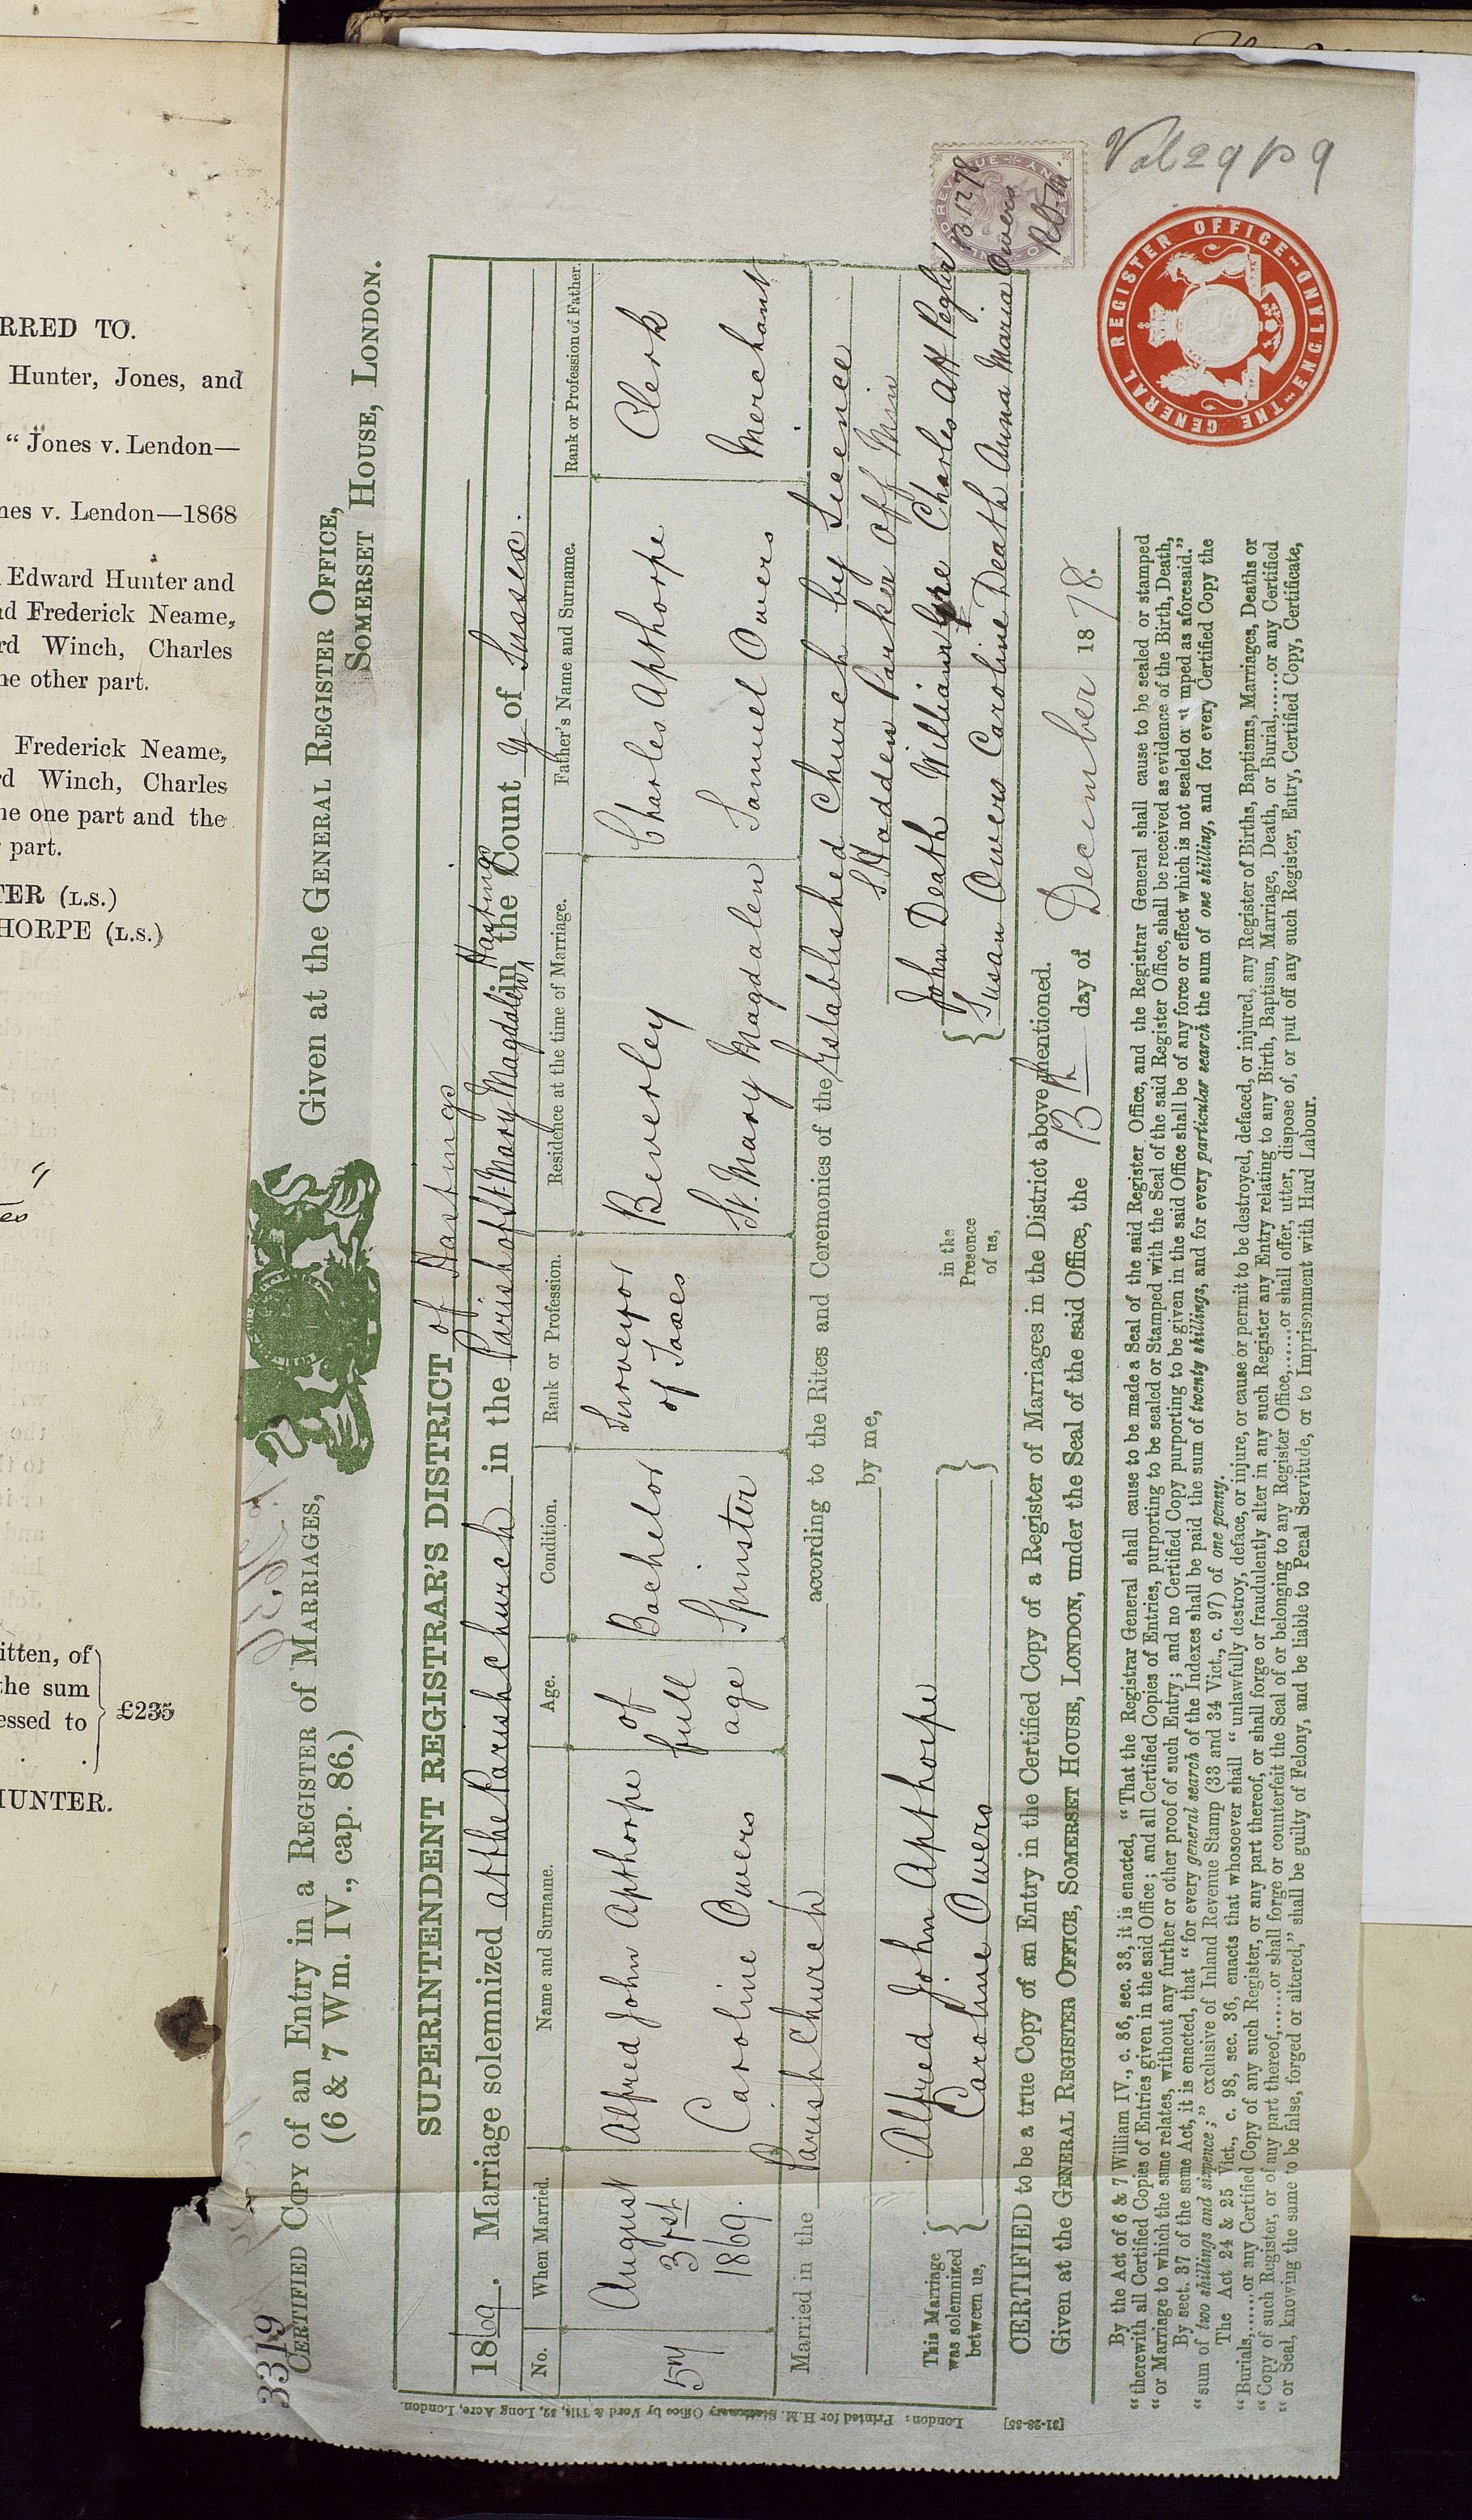 RRED TO.
Hunter, Jones, and
"Jones v. Lendon—
nes v. Lendon—1868
Edward Hunter and
nd Frederick Neame,
rd Winch, Charles
he other part.
Frederick Neame,
rd Winch, Charles
ne one part and the
part.
TER (L.S.)
HORPE (L.S.)
itten, of
the sum
essed to
£235
HUNTER.
3319
CERTIFIED COPY of an Entry in a REGISTER OF MARRIAGES,
(6 & 7 Wm. IV., cap. 86.)
Given at the GENERAL REGISTER OFFICE,
SOMERSET HOUSE, LONDON.
SUPERINTENDENT REGISTRAR'S DISTRICT of Hastings
1869. Marriage solemnized at the Parish Church in the Parish of St Mary Magdalen Hastings in the County of Sussex.
No. When Married. Name and Surname. Age. Condition. Rank or Profession. Residence at the time of Marriage. Father's Name and Surname. Rank or Profession of Father.
57 August 31st 1869. Alfred John Apthorpe of full age Bachelor Surveyor of Taxes Beverley Charles Apthorpe Clerk
Caroline Owers Spinster St. Mary Magdalen Samuel Owers Merchant
Married in the Parish Church according to the Rites and Ceremonies of the Established Church by Licence
by me, S. Hadden Parker Off Min
This Marriage was solemnized between us, { Alfred John Apthorpe
Caroline Owers } in the Presence of us, { John Death William Gre Charles Att Pegler
Susan Owers Caroline Death Anna Maria Owers
CERTIFIED to be a true Copy of an Entry in the Certified Copy of a Register of Marriages in the District above mentioned.
Given at the GENERAL REGISTER OFFICE, SOMERSET HOUSE, LONDON, under the Seal of the said Office, the 13th day of December 1878.
By the Act of 6 & 7 William IV., c. 86, sec. 38, it is enacted, "That the Registrar General shall cause to be made a Seal of the said Register Office, and the Registrar General shall cause to be sealed or stamped
"therewith all Certified Copies of Entries given in the said Office; and all Certified Copies of Entries, purporting to be sealed or Stamped with the Seal of the said Register Office, shall be received as evidence of the Birth, Death,
"or Marriage to which the same relates, without any further or other proof of such Entry; and no Certified Copy purporting to be given in the said Office shall be of any force or effect which is not sealed or stamped as aforesaid."
By sect. 37 of the same Act, it is enacted, that "for every general search of the Indexes shall be paid the sum of twenty shillings, and for every particular search the sum of one shilling, and for every Certified Copy the
"sum of two shillings and sixpence;" exclusive of Inland Revenue Stamp (33 and 34 Vict., c. 97) of one penny.
The Act 24 & 25 Vict., c. 98, sec. 36, enacts that whosoever shall "unlawfully destroy, deface, or injure, or cause or permit to be destroyed, defaced, or injured, any Register of Births, Baptisms, Marriages, Deaths or
"Burials,......or any Certified Copy of any such Register, or any part thereof, or shall forge or fraudulently alter in any such Register any Entry relating to any Birth, Baptism, Marriage, Death, or Burial,......or any Certified
"Copy of such Register, or of any part thereof,......or shall forge or counterfeit the Seal of or belonging to any Register Office,......or shall offer, utter, dispose of, or put off any such Register, Entry, Certified Copy, Certificate,
"or Seal, knowing the same to be false, forged or altered," shall be guilty of Felony, and be liable to Penal Servitude, or to Imprisonment with Hard Labour.
London: Printed for H.M. Stationery Office by Ford & Tilt, 52, Long Acre, London.
[31-28-85]
13 12 78
THE GENERAL REGISTER OFFICE ENGLAND
Vol 29 p 9